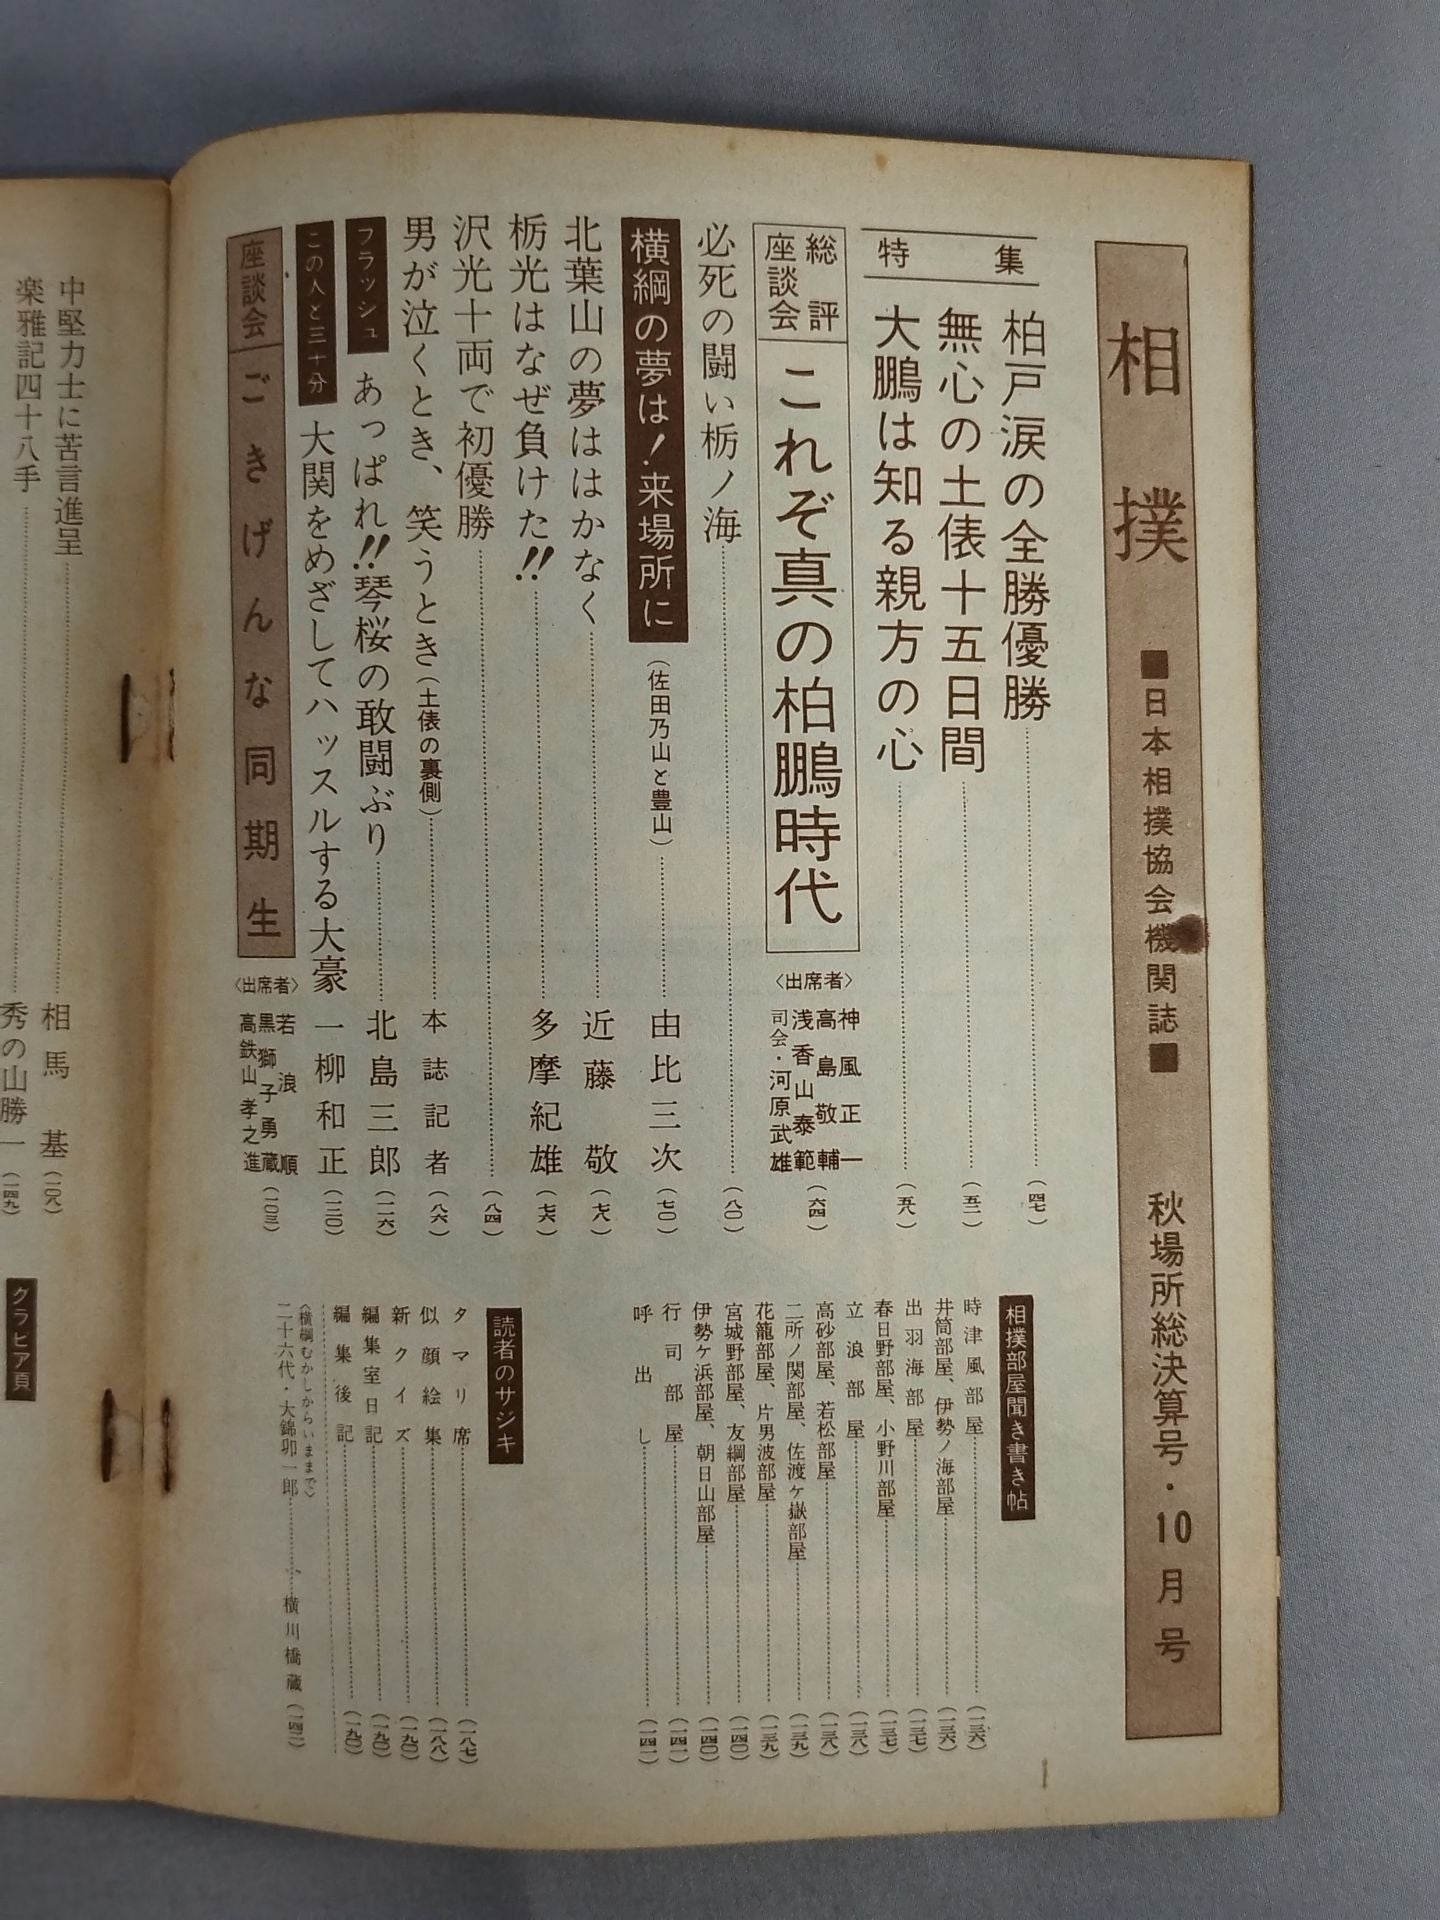 相撲 ■日本相撲協会機関誌■ 秋場所総決算号・10月号
特集
柏戸涙の全勝優勝(四七)
無心の土俵十五日間(五二)
大鵬は知る親方の心(五八)
総評座談会
これぞ真の柏鵬時代
〈出席者〉
神風正一
高島敬輔
浅香山泰範
司会・河原武雄
(六四)
必死の闘い栃ノ海(八〇)
横綱の夢は!来場所に(佐田乃山と豊山) 由比三次(七〇)
北葉山の夢ははかなく 近藤敬(七八)
栃光はなぜ負けた!! 多摩紀雄(七六)
沢光十両で初優勝(八四)
男が泣くとき、笑うとき(土俵の裏側) 本誌記者(八六)
フラッシュ
あっぱれ!!琴桜の敢闘ぶり 北島三郎(一一六)
この人と三十分
大関をめざしてハッスルする大豪 一柳和正(一二〇)
座談会
ごきげんな同期生
〈出席者〉
若浪順
黒獅子勇蔵
高鉄山孝之進
(一〇三)
相撲部屋聞き書き帖
時津風部屋(一三六)
井筒部屋、伊勢ノ海部屋(一三六)
出羽海部屋(一三七)
春日野部屋、小野川部屋(一三七)
立浪部屋(一三八)
高砂部屋、若松部屋(一三八)
二所ノ関部屋、佐渡ケ嶽部屋(一三九)
花籠部屋、片男波部屋(一三九)
宮城野部屋、友綱部屋(一四〇)
伊勢ケ浜部屋、朝日山部屋(一四〇)
行司部屋(一四一)
呼出し(一四一)
読者のサジキ
タマリ席(一八七)
似顔絵集(一八八)
新クイズ(一九〇)
編集室日記(一九〇)
編集後記(一九〇)
〈横綱むかしからいままで〉
二十六代・大錦卯一郎 横川橋蔵(一四二)
中堅力士に苦言進呈 相馬基(一〇八)
楽雅記四十八手 秀の山勝一(一四九)
グラビア頁